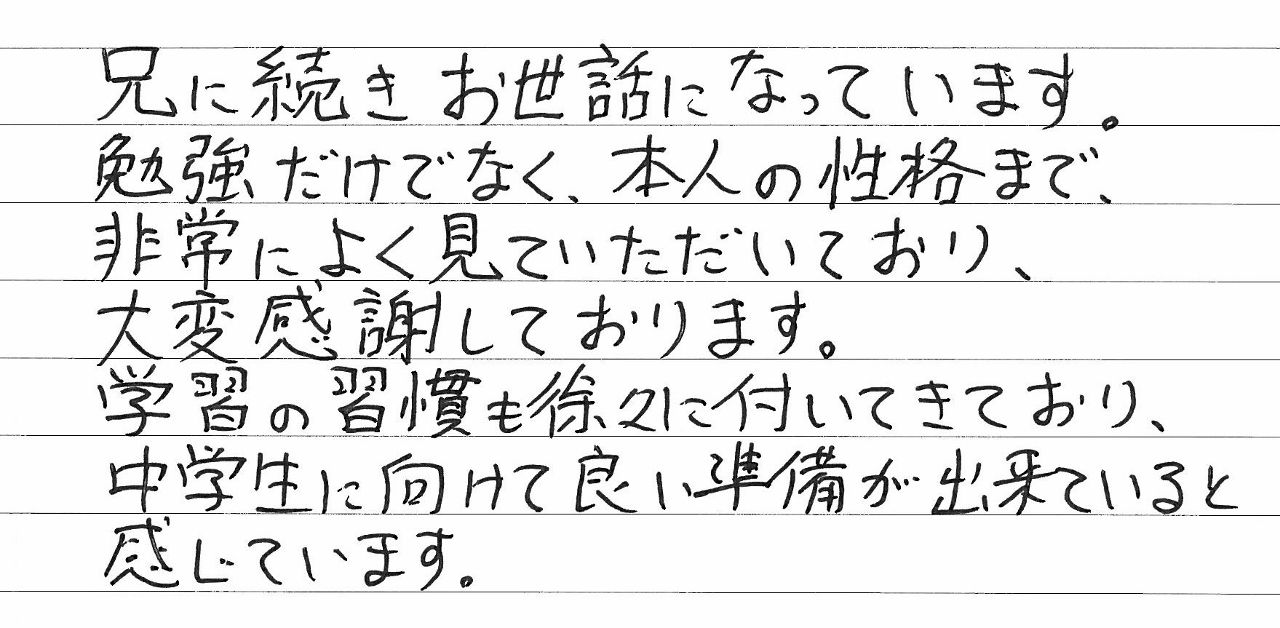 兄に続きお世話になっています。
勉強だけでなく、本人の性格まで、
非常によく見ていただいており、
大変感謝しております。
学習の習慣も徐々に付いてきており、
中学生に向けて良い準備が出来ていると
感じています。